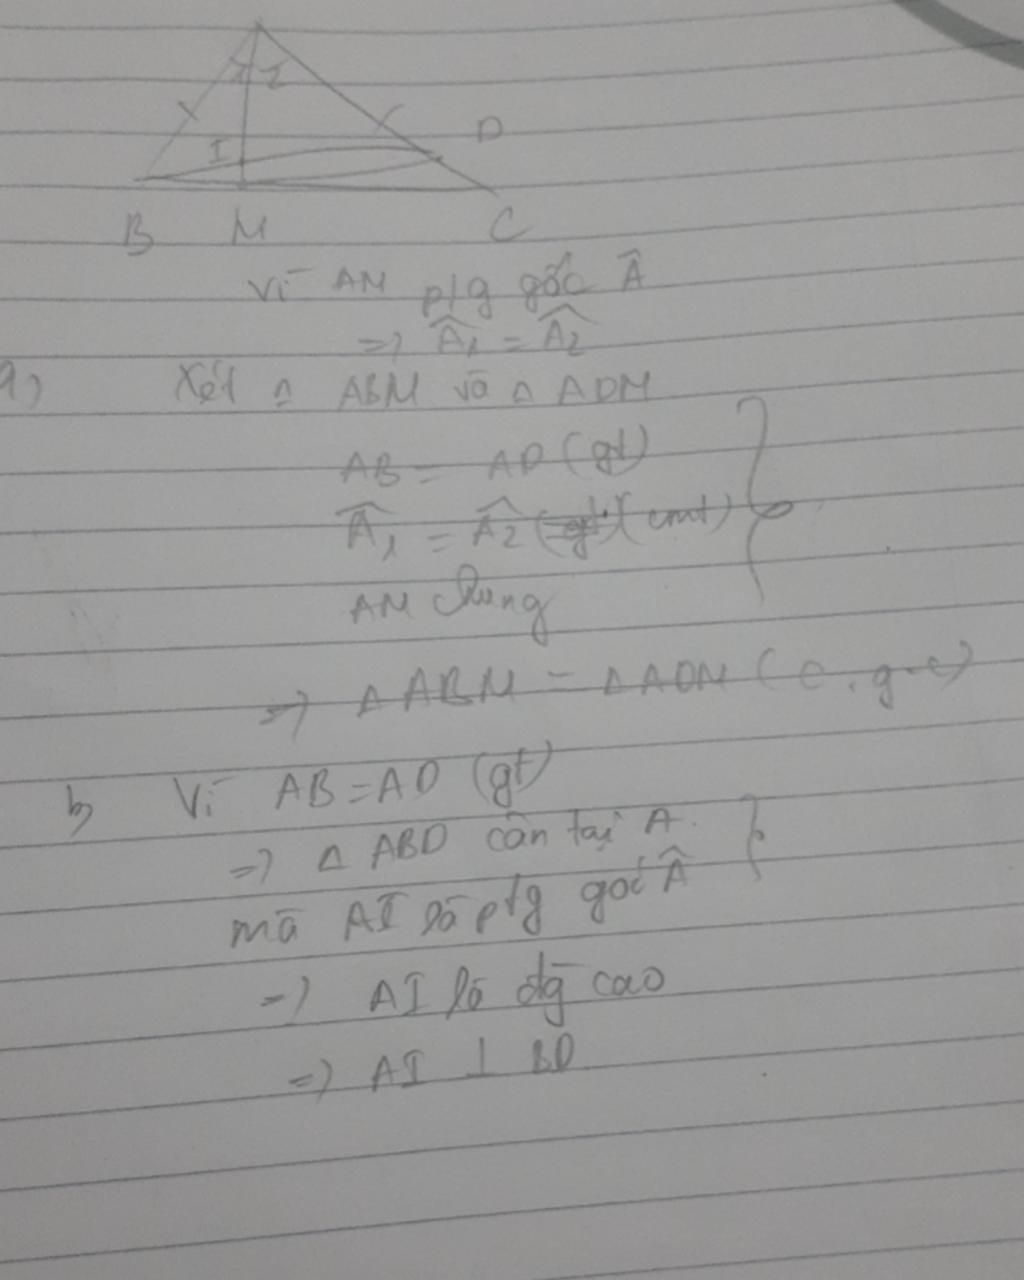 1 2
I
D
B M C
Vì AM p/g góc Â
=> Â₁ = Â₂
a) Xét Δ ABM và Δ ADM
AB = AD (gt)
Â₁ = Â₂ (cmt)
AM chung
=> Δ ABM = Δ ADM (c.g.c)
b Vì AB = AD (gt)
=> Δ ABD cân tại A
mà AI là p/g góc Â
=> AI là đg cao
=> AI ⊥ BD